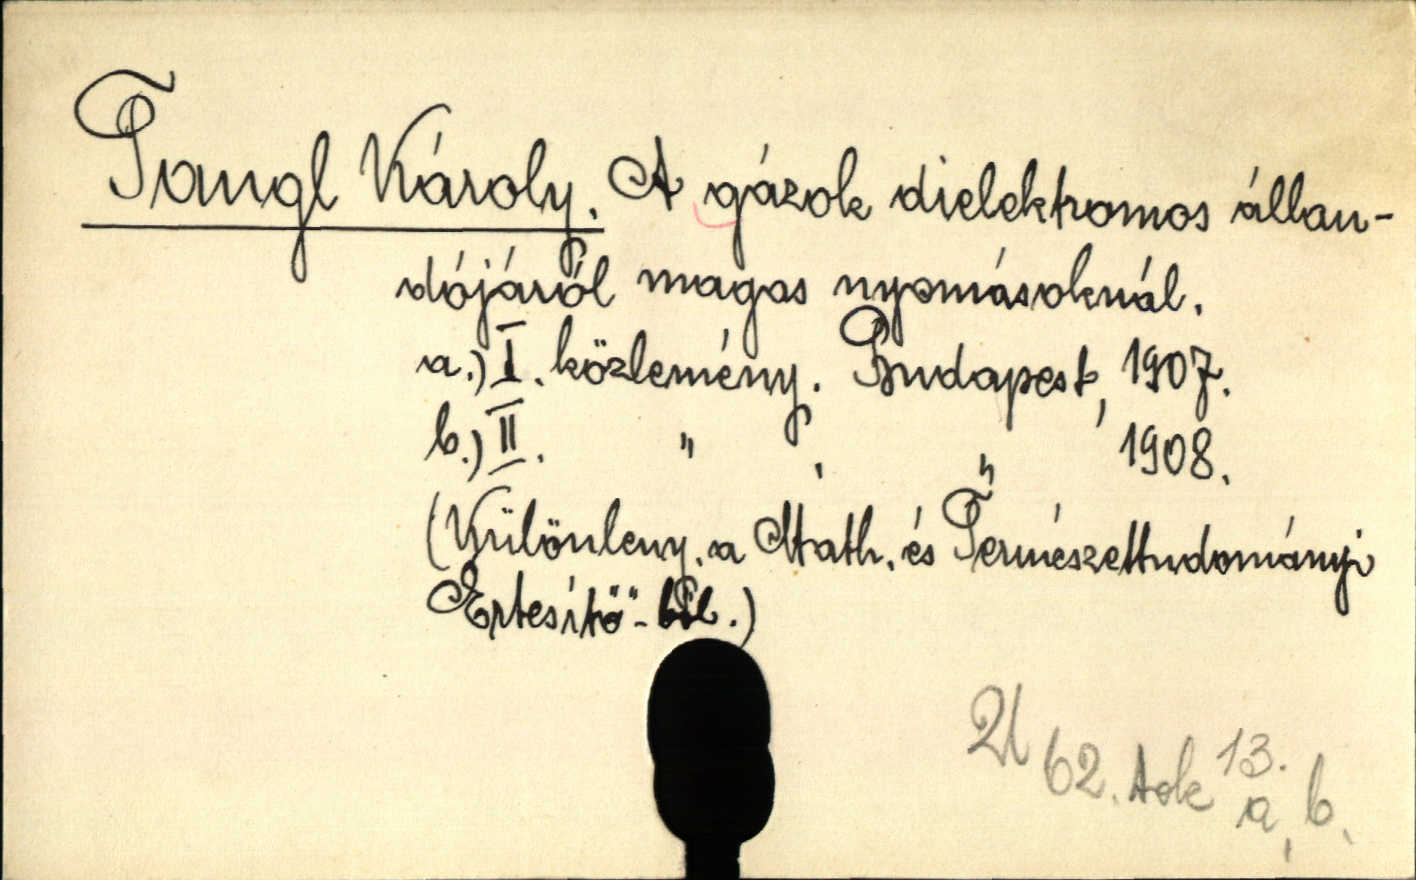 Tangl Károly. A gázok dielektromos állan-
dójáról magas nyomásoknál.
a.) I. közlemény. Budapest, 1907.
b.) II. " , " 1908.
(Különleny. a Math. és Természettudományi
Értesítő"-ből.)
62. tok 13.
a, b.